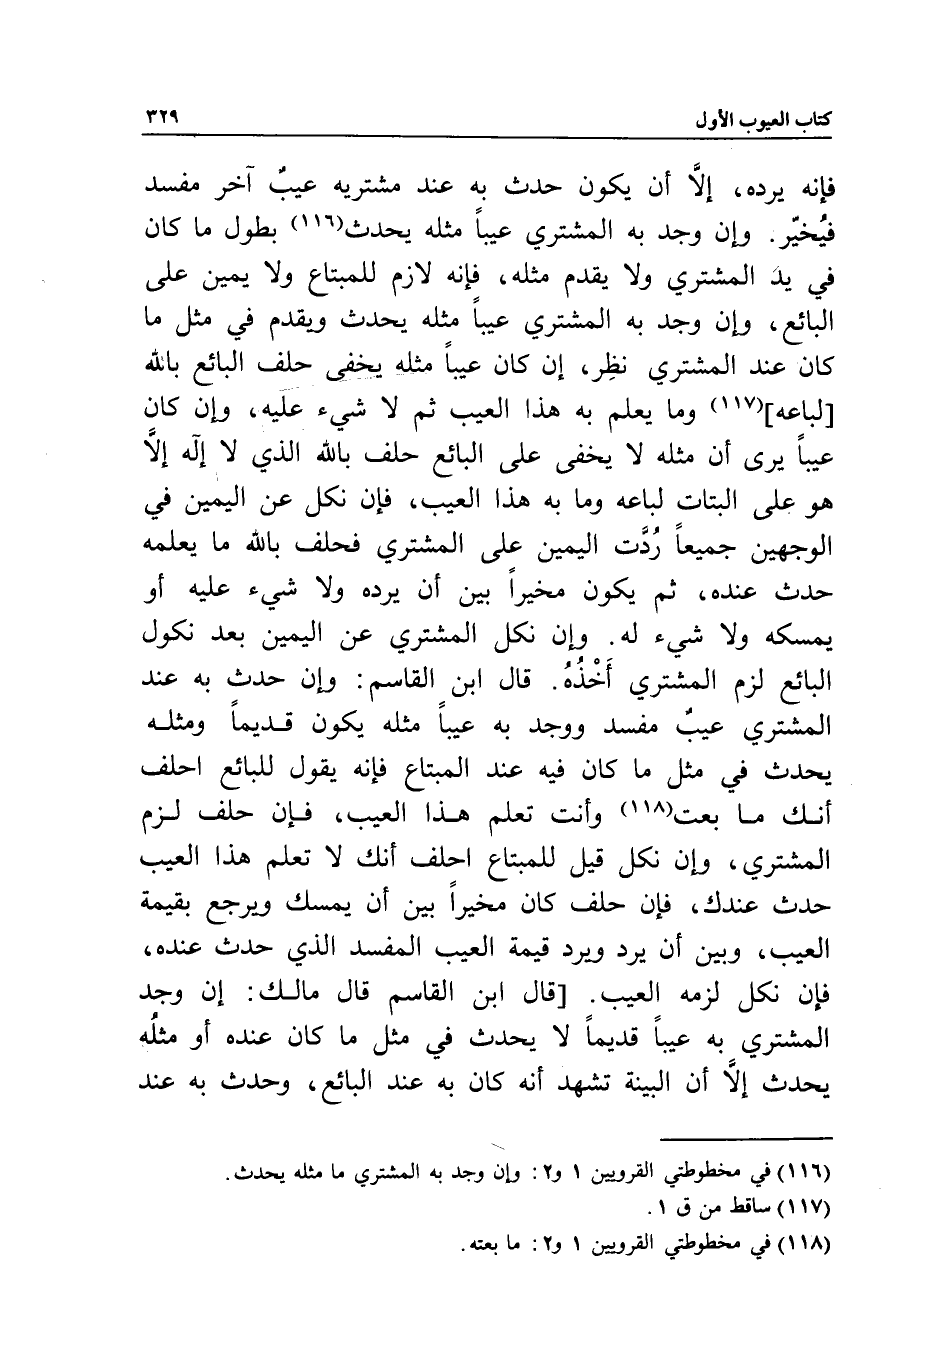 كتاب العيوب الأول ٣٢٩
فإنه يرده، إلَّا أن يكون حدث به عند مشتريه عيبٌ آخر مفسد
فيُخيّر. وإن وجد به المشتري عيباً مثله يحدث(١١٦) بطول ما كان
في يد المشتري ولا يقدم مثله، فإنه لازم للمبتاع ولا يمين على
البائع، وإن وجد به المشتري عيباً مثله يحدث ويقدم في مثل ما
كان عند المشتري نظِر، إن كان عيباً مثله يخفى حلف البائع بالله
[لباعه](١١٧) وما يعلم به هذا العيب ثم لا شيء عليه، وإن كان
عيباً يرى أن مثله لا يخفى على البائع حلف بالله الذي لا إلٓه إلاَّ
هو على البتات لباعه وما به هذا العيب، فإن نكل عن اليمين في
الوجهين جميعاً رُدَّت اليمين على المشتري فحلف بالله ما يعلمه
حدث عنده، ثم يكون مخيراً بين أن يرده ولا شيء عليه أو
يمسكه ولا شيء له. وإن نكل المشتري عن اليمين بعد نكول
البائع لزم المشتري أَخْذُهُ. قال ابن القاسم: وإن حدث به عند
المشتري عيبٌ مفسد ووجد به عيباً مثله يكون قـديماً ومثلـه
يحدث في مثل ما كان فيه عند المبتاع فإنه يقول للبائع احلف
أنـك مـا بعت(١١٨) وأنت تعلم هـذا العيب، فـإن حلف لـزم
المشتري، وإن نكل قيل للمبتاع احلف أنك لا تعلم هذا العيب
حدث عندك، فإن حلف كان مخيراً بين أن يمسك ويرجع بقيمة
العيب، وبين أن يرد ويرد قيمة العيب المفسد الذي حدث عنده،
فإن نكل لزمه العيب. [قال ابن القاسم قال مالـك: إن وجد
المشتري به عيباً قديماً لا يحدث في مثل ما كان عنده أو مثلُه
يحدث إلاَّ أن البينة تشهد أنه كان به عند البائع، وحدث به عند
(١١٦) في مخطوطتي القرويين ١ و٢: وإن وجد به المشتري ما مثله يحدث.
(١١٧) ساقط من ق ١.
(١١٨) في مخطوطتي القرويين ١ و٢: ما بعته.